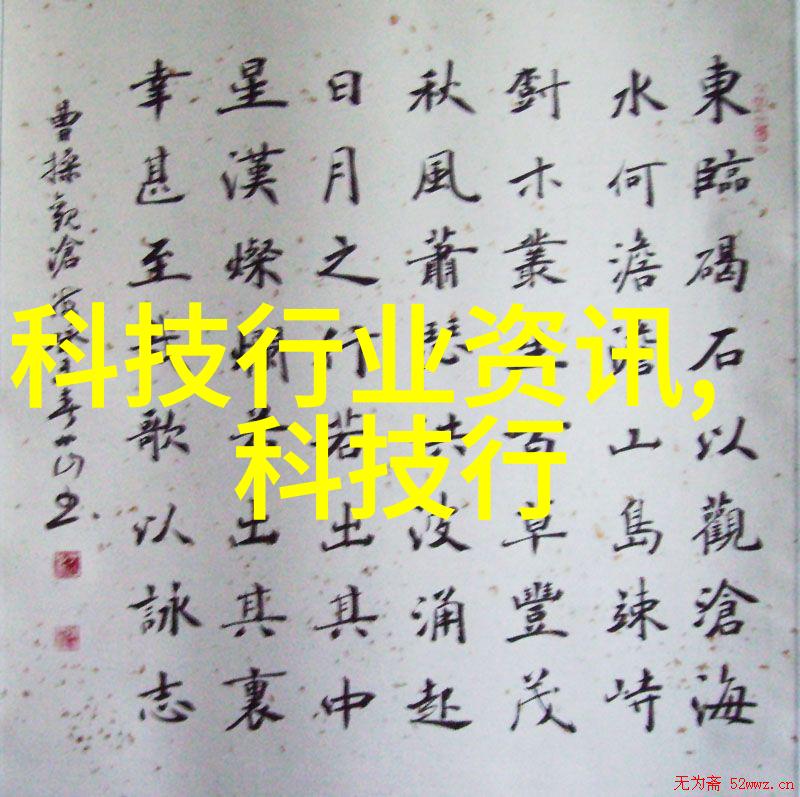 東臨碣石以觀滄海
水何澹澹山島竦峙
樹木叢生百草豐茂
秋風蕭瑟洪波涌起
日月之行若出其中
星漢燦爛若出其裏
幸甚至哉歌以詠志
曹操觀滄海
科技行业资讯,
科技行
无为斋 52wwz.cn